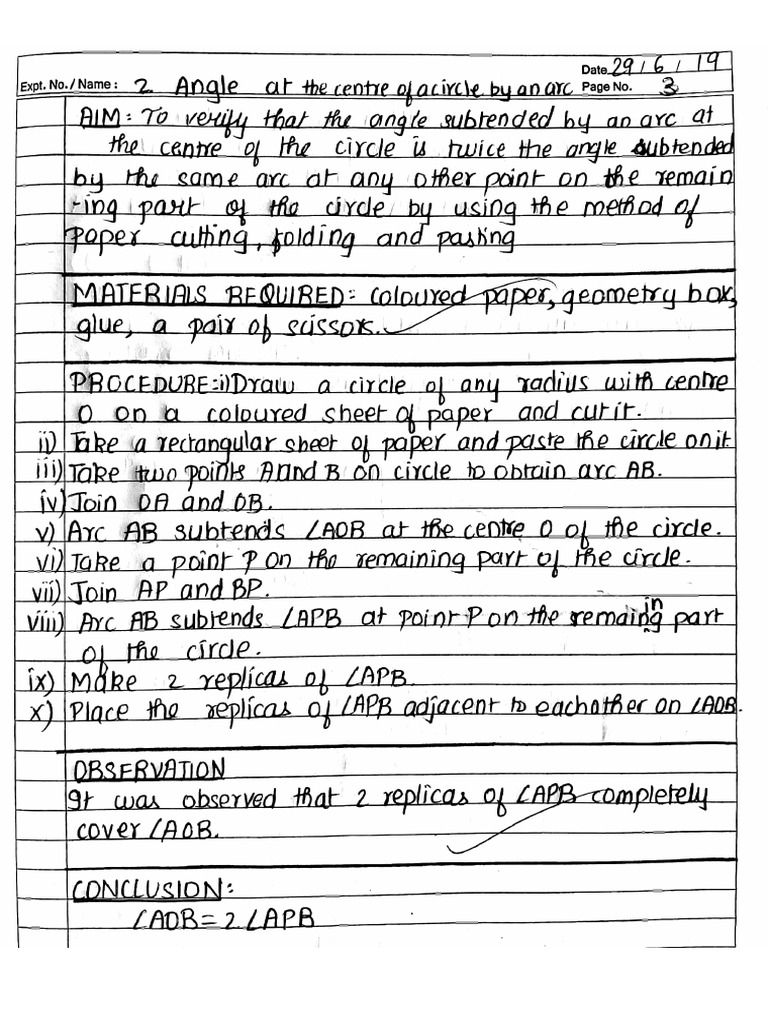 Date 29/6/19
Expt. No./Name : 2. Angle at the centre of a circle by an arc Page No. 3
AIM: To verify that the angle subtended by an arc at
the centre of the circle is twice the angle subtended
by the same arc at any other point on the remain
-ing part of the circle by using the method of
paper cutting, folding and pasting
MATERIALS REQUIRED: coloured paper, geometry box,
glue, a pair of scissors.
PROCEDURE:i)Draw a circle of any radius with centre
O on a coloured sheet of paper and cut it.
ii) Take a rectangular sheet of paper and paste the circle on it
iii) Take two points A and B on circle to obtain arc AB.
iv) Join OA and OB.
v) Arc AB subtends ∠AOB at the centre O of the circle.
vi) Take a point P on the remaining part of the circle.
vii) Join AP and BP.
viii) Arc AB subtends ∠APB at point P on the remaining part
of the circle.
ix) Make 2 replicas of ∠APB.
x) Place the replicas of ∠APB adjacent to eachother on ∠AOB.
OBSERVATION
It was observed that 2 replicas of ∠APB completely
cover ∠AOB.
CONCLUSION:
∠AOB = 2 ∠APB